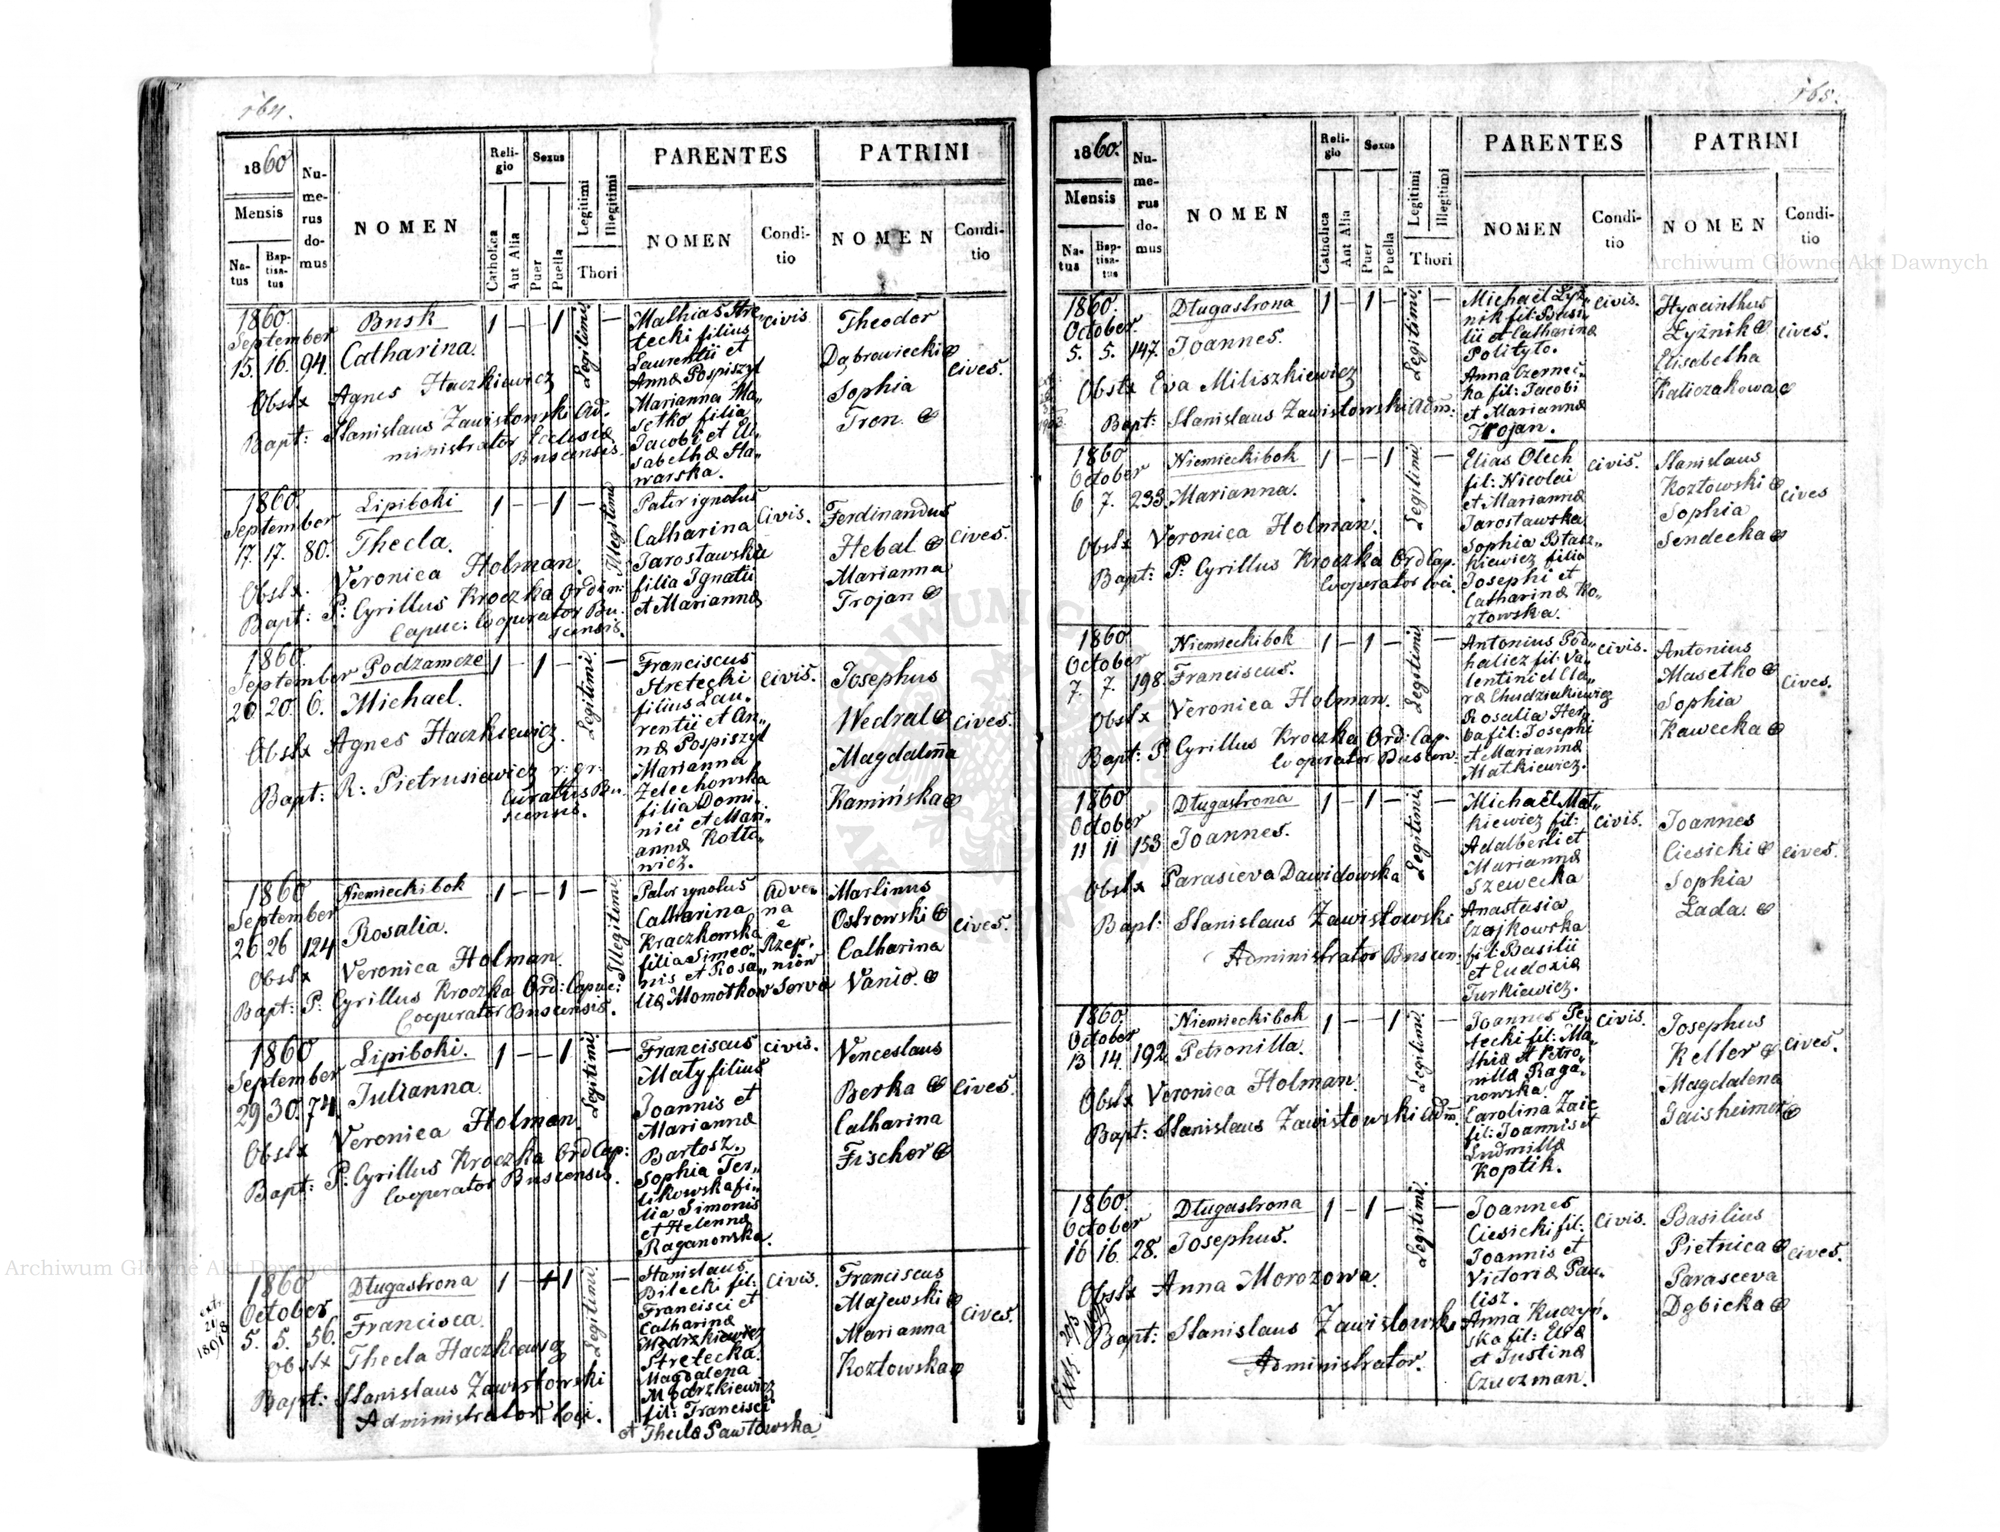 164.
1860
Mensis
Na-
tus
Bap-
tisa-
tus
Nu-
me-
rus
do-
mus
NOMEN
Reli-
gio
Catholica
Aut Alia
Sexus
Puer
Puella
Legitimi
Illegitimi
Thori
PARENTES
NOMEN
Condi-
tio
PATRINI
NOMEN
Condi-
tio
1860.
September
15. 16. 94.
Busk
Catharina.
1 – – 1
Legitimi
–
Obstx Agnes Haczkiewicz
Bapt: Stanislaus Zawistowski Ad-
ministrator Ecclesiæ
Buscensis.
Mathias Stre-
tecki filius
Laurentii et
Annæ Pospiszyl
Marianna Ma-
setko filia
Jacobi et Eli-
sabethæ Sta-
warska.
civis
Theodor
Dąbrowiecki
Sophia
Tron.
cives.
1860.
September
17. 17. 80.
Lipiboki
Thecla.
1 – – 1 –
Illegitimi
Obstx. Veronica Holman.
Bapt: P: Cyrillus Kroczka Ordin:
Capuc: Cooperator Bu-
scensis.
Pater ignotus
Catharina
Jarosławska
filia Ignatii
et Mariannæ
civis.
Ferdinandus
Hebal
Marianna
Trojan
cives.
1860.
September
20 20. 6.
Podzamcze
Michael.
1 – 1 –
Legitimi.
–
Obstx Agnes Haczkiewicz.
Bapt: R: Pietrusiewicz r: gr:
Curatus Bu-
scensis.
Franciscus
Stretecki
filius Lau-
rentii et An-
næ Pospiszyl
Marianna
Zelechowska
filia Domi-
nici et Mari-
annæ Kotto-
wicz.
civis.
Josephus
Wedral
Magdalena
Kamińska
cives.
1860
September
26 26 124
Niemiecki bok
Rosalia.
1 – – 1 –
Illegitimi
Obstx Veronica Holman.
Bapt: P: Cyrillus Kroczka Ord: Capuc:
Cooperator Buscensis.
Pater ignotus
Catharina
Kraczkowska
filia Simeo-
nis et Rosa-
liæ Momotkow
Adve-
na
e
Rzep-
niow
Serva
Martinus
Ostrowski
Catharina
Vanio.
cives.
1860
September
29 30. 74.
Lipiboki.
Julianna
1 – – 1
Legitimi
–
Obstx Veronica Holman.
Bapt: P: Cyrillus Kroczka Ord Cap:
Cooperator Buscensis.
Franciscus
Maty filius
Joannis et
Mariannæ
Bartosz.
Sophia Ter-
likowska fi-
lia Simonis
et Helennæ
Raganowska.
civis.
Venceslaus
Berka
Catharina
Fischer
cives.
1860
October
5. 5. 56.
Długastrona
Francisca.
1 – + 1
Legitimi.
–
Obstx Thecla Haczkiewicz
Bapt: Stanislaus Zawistowski
Administrator loci.
Stanislaus
Bilecki fil:
Francisci et
Catharinæ
Stretecka.
Magdalena
Modrzkiewicz
fil: Francisci
et Theclæ Pawłowska
civis.
Franciscus
Majewski
Marianna
Kozłowska
cives.
165.
1860.
Mensis
Na-
tus
Bap-
tisa-
tus
Nu-
me-
rus
do-
mus
NOMEN
Reli-
gio
Catholica
Aut Alia
Sexus
Puer
Puella
Legitimi
Illegitimi
Thori
PARENTES
NOMEN
Condi-
tio
PATRINI
NOMEN
Condi-
tio
1860.
October.
5. 5. 147.
Długastrona
Joannes.
1 – 1 –
Legitimi.
–
Obstx Eva Miliszkiewicz
Bapt: Stanislaus Zawistowski Adm:
Michael Łyż-
nik fil: Basi-
lii et Catharinæ
Polityto.
Anna Czernec-
ka fil: Jacobi
et Mariannæ
Trojan.
civis.
Hyacinthus
Łyżnik
Elisabetha
Kaliczakowa
cives.
1860
October
6 7. 233.
Niemiecki bok
Marianna.
1 – – 1
Legitimi
–
Obstx Veronica Holman.
Bapt: P: Cyrillus Kroczka Ord Cap.
Cooperator loci.
Elias Olech
fil: Nicolai
et Mariannæ
Jarosławska
Sophia Błasz-
kiewicz filia
Josephi et
Catharinæ Ko-
złowska.
civis.
Stanislaus
Kozłowski
Sophia
Sendecka
cives
1860
October
7. 7. 198.
Niemiecki bok
Franciscus.
1 – 1 –
Legitimi
–
Obstx Veronica Holman.
Bapt: P: Cyrillus Kroczka Ord: Cap.
Cooperator Buscen:
Antonius Pod-
halicz fil: Va-
lentini et Cla-
ræ Chudziakiewicz
Rosalia Her-
ba fil: Josephi
et Mariannæ
Matkiewicz.
civis.
Antonius
Masetko
Sophia
Kawecka
cives.
1860
October
11 11 153
Długastrona
Joannes.
1 – 1 –
Legitimi.
–
Obstx Parasceva Dawidowska
Bapt: Stanislaus Zawistowski
Administrator Buscen:
Michael Mat-
kiewicz fil:
Adalberti et
Mariannæ
Szewecka
Anastasia
Czajkowska
fil: Basilii
et Eudoxiæ
Turkiewicz.
civis.
Joannes
Ciesicki
Sophia
Łada.
cives.
1860.
October
13 14. 192
Niemiecki bok
Petronilla.
1 – – 1
Legitimi.
–
Obstx Veronica Holman.
Bapt: Stanislaus Zawistowski Adm.
thiæ et Petro-
nillæ Raga-
nowska.
Carolina Zaic
fil: Joannis et
Ludmillæ
Koptik.
civis.
Josephus
Keller
Magdalena
Gaisheimer
cives.
1860.
October
16 16. 28.
Długastrona
Josephus.
1 – 1 –
Legitimi.
–
Obstx Anna Morozowa.
Bapt: Stanislaus Zawistowski
Administrator.
Joannes
Ciesicki fil.
Joannis et
Victoriæ Pau-
lisz.
Anna Kuczyń-
ska fil: Evæ
et Justinæ
Czuczman.
civis.
Basilius
Pietnica
Parasceva
Dębicka
cives.
Archiwum Główne Akt Dawnych
Archiwum Główne Akt Dawnych